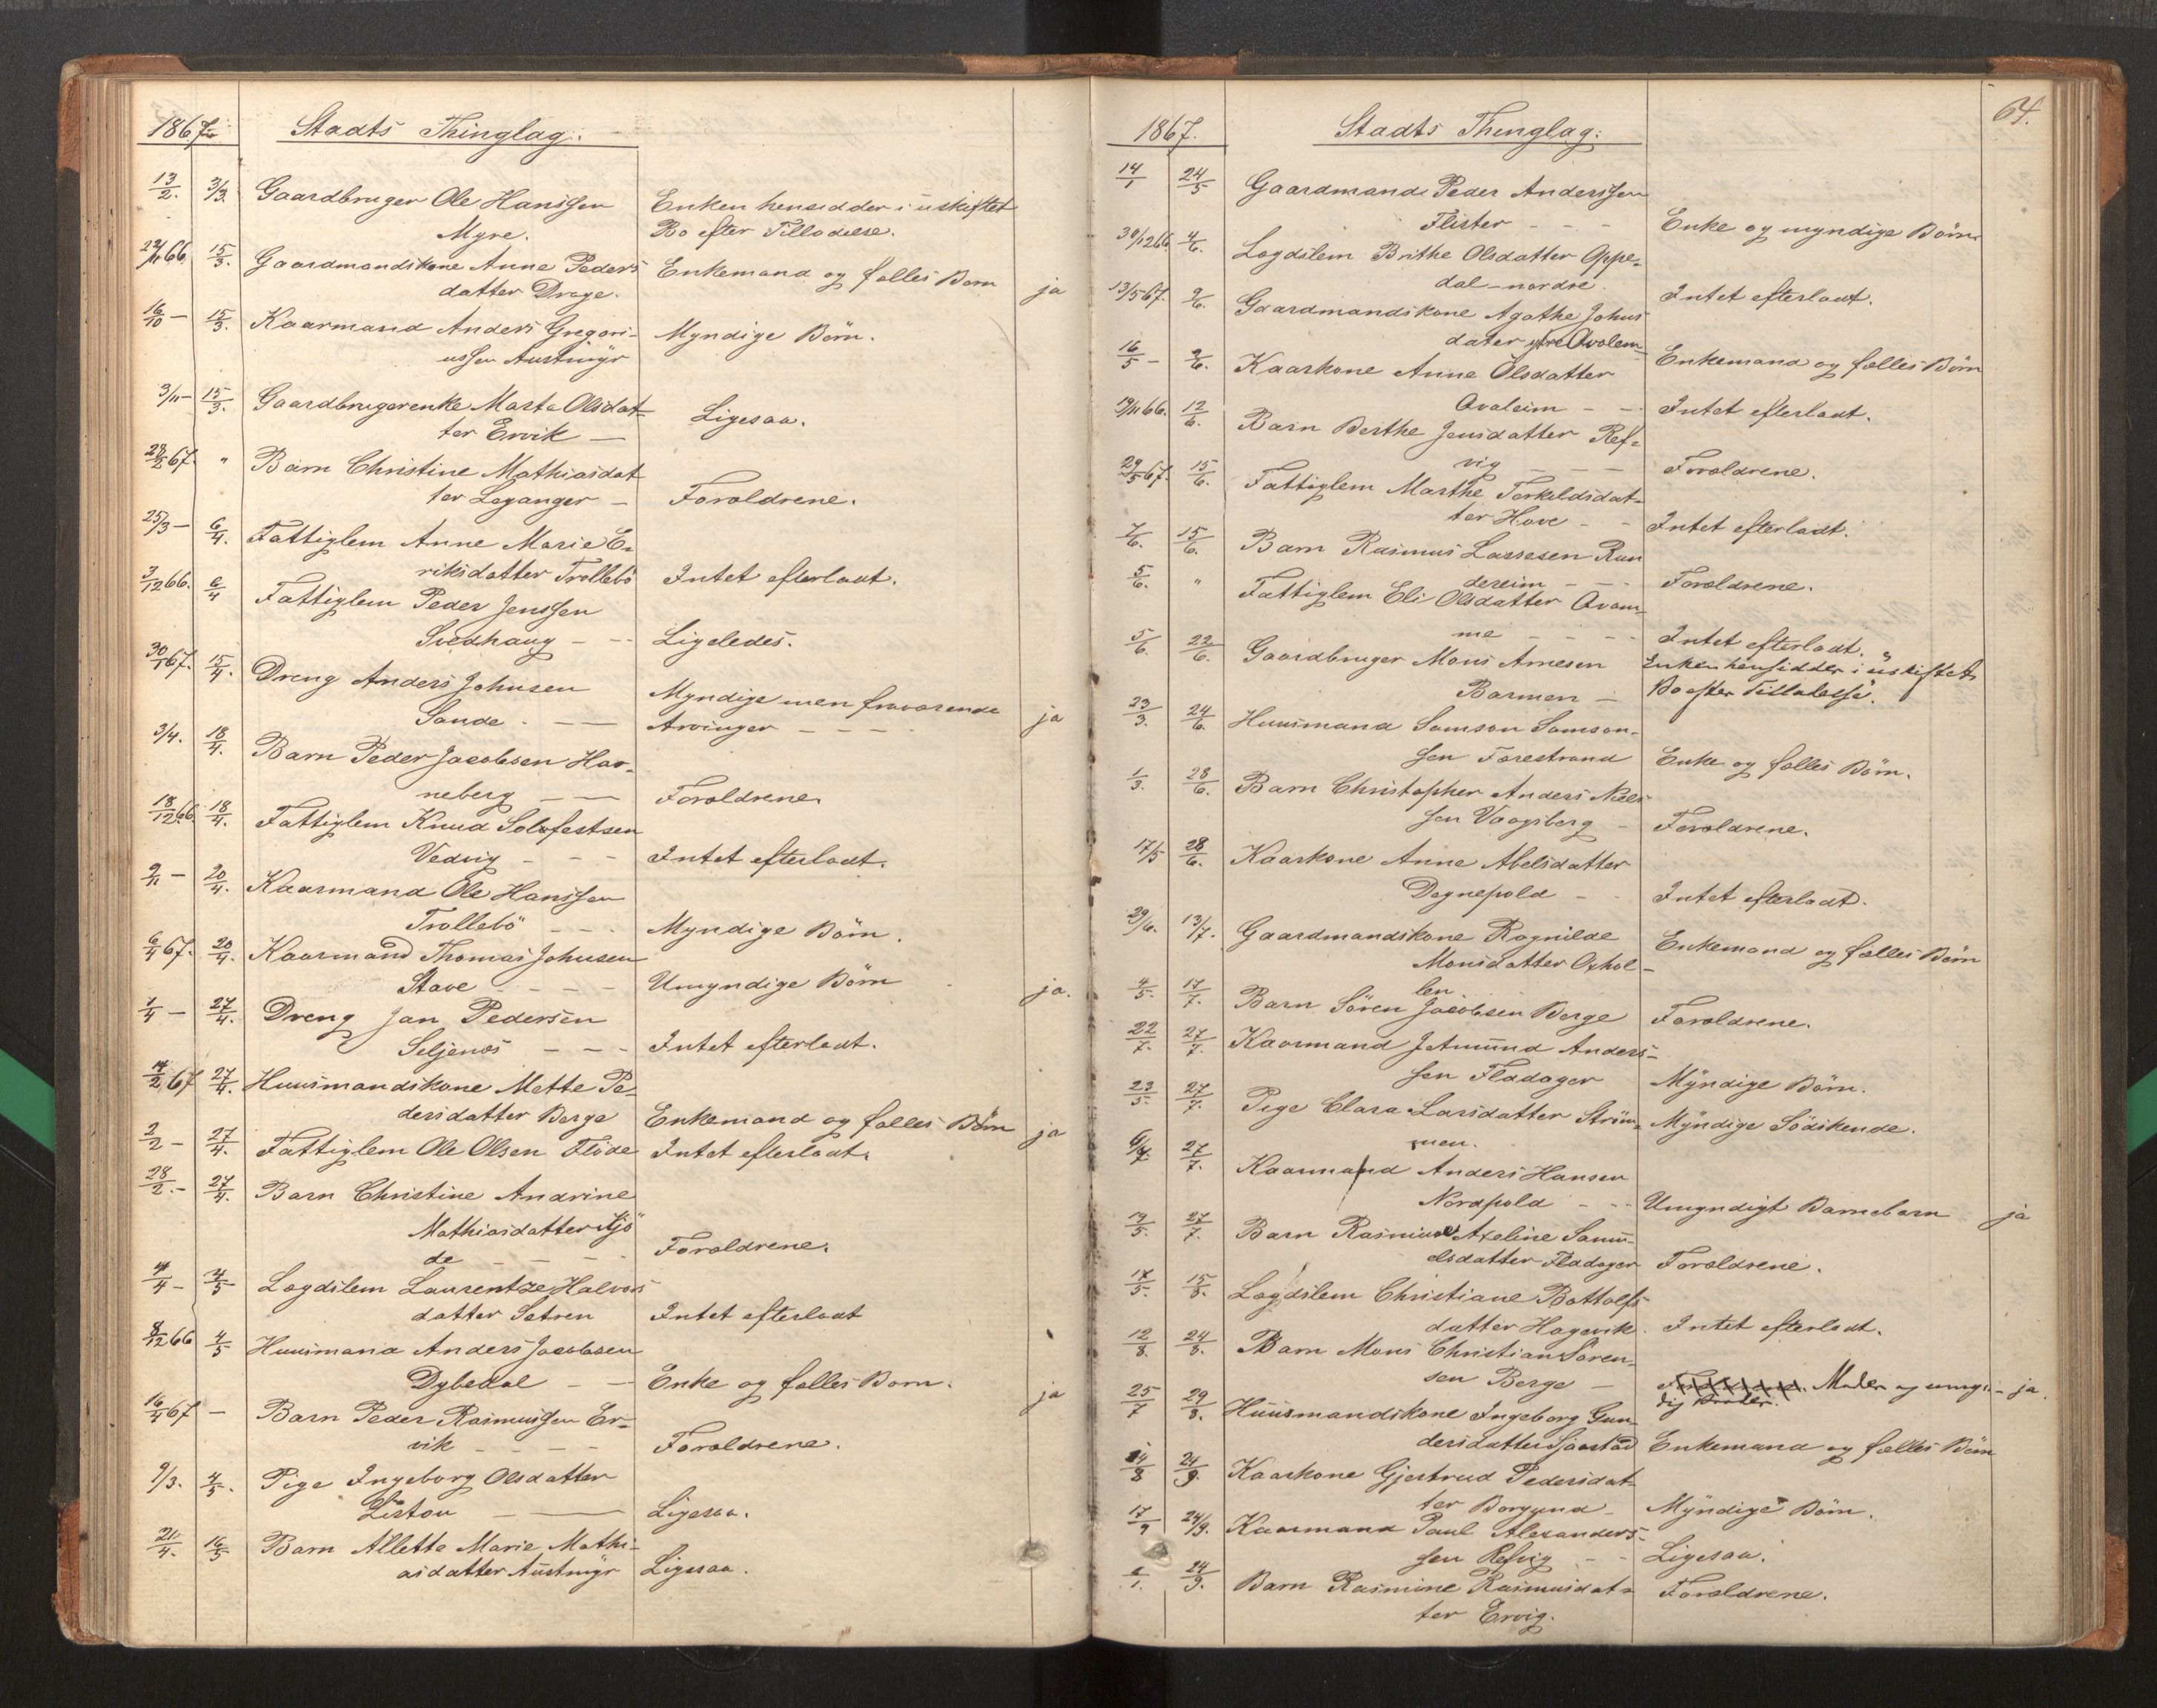 1867 Stadts Thinglag.
13/2. 3/3. Gaardbruger Ole Hanssen Enken hensidder i uskiftet
Myre. Bo efter Tilladelse.
66. 15/3. Gaardmandskone Anne Peders Enkemand og fælles Børn ja
datter Drage.
16/10 — 15/3. Kaarmand Anders Gregori- Myndige Börn.
ussen Austmyr
3/11 — 15/3. Gaardbrugerenke Marta Olsdat-
ter Ervik — Ligesaa.
28/2 67. " Barn Christine Mathiasdat
ter Leganger — Forældrene.
25/3 — 6/4. Fattiglem Anne Marie E-
riksdatter Trollebö Intet efterladt.
3/12 66. 6/4 Fattiglem Peder Jenssen
Ligeledes.
30/1 67. 15/4. Dreng Anders Johnsen Myndige men fraværende
Sande. — Arvinger — — — ja
3/4. 18/4. Barn Peder Jacobsen Hav-
neberg — Forældrene
18/12 66. 18/4. Fattiglem Knud Solofestsen
Vedvig — — — Intet efterladt.
9/11 — 20/4. Kaarmand Ole Hanssen
Trollebö — — — Myndige Börn.
6/4 67. 20/4. Kaarmand Thomas Johnsen
Stave — — — Umyndige Börn ja.
1/4 — 27/4. Dreng Jan Pedersen
Seljenæs — — — Intet efterladt.
14/2 67 27/4. Huusmandskone Mette Pe-
dersdatter Berge Enkemand og fælles Börn ja
2/2 — 27/4. Fattiglem Ole Olsen Flöde Intet efterladt.
28/2. — 27/4. Barn Christine Andrine
Mathiasdatter
de — — — Forældrene.
4/4 — 4/5 Lægdslem Laurentze Halvors
datter Sætren Intet efterladt
8/12 66 4/5 Huusmand Anders Jacobsen
Dybedal — — Enke og fælles Börn. ja
16/4 67 — Barn Peder Rasmussen Er-
vik — — — Forældrene.
9/3. 4/5. Pige Ingeborg Olsdatter
Listou — Ligesaa.
21/4. 16/5 Barn Allette Marie Mathi-
asdatter Austmyr Ligesaa.
64.
1867. Stadts Thinglag.
14/1 24/5 Gaardmand Peder Anderssen
Flister — — — Enke og myndige Börn
30/12 66. 4/6. Lægdslem Brithe Olsdatter Oppe-
dal nordre. Intet efterladt.
13/5 67. 9/6. Gaardmandskone Agathe Johns
dater ytre Qvalem Enkemand og fælles Börn
16/5 — 9/6. Kaarkone Anne Olsdatter
Qvaleim — — Intet efterladt.
19/11 66. 12/6. Barn Berthe Jensdatter Ref-
vig — — — Forældrene.
29/5 67. 15/6. Fattiglem Marthe Terkeldsdat-
ter Hove — — Intet efterladt.
7/6. 15/6. Barn Rasmus Lassesen Run
dereim — — Forældrene.
5/6. " Fattiglem Eli Olsdatter Qvam-
me — — — Intet efterladt.
5/6. 22/6. Gaardbruger Mons Arnesen Enken hensidder i uskiftet
Barmen — Bo efter Tilladelse.
23/3. 24/6. Huusmand Samson Samson-
sen Forestrand Enke og fælles Börn.
1/3. 28/6. Barn Christopher Anders Niels
sen Vaagsberg — Forældrene.
17/5 28/6. Kaarkone Anne Abelsdatter
Degnepold — — Intet efterladt.
29/6. 13/7. Gaardmandskone Ragnilde Enkemand og fælles Börn
Monsdatter Oxhol-
len
4/5. 17/7. Barn Sören Jacobsen Berge Forældrene.
22/7. 27/7. Kaarmand Anders-
sen Fladager Myndige Börn.
23/5. 27/7. Pige Clara Larsdatter Ström- Myndige Södskende.
men.
27/7. Kaarmand Anders Hansen
Nordpold — — Umyndigt Barnebarn ja
19/5. 27/7. Barn Rasmine Axeline Samu-
elsdatter Fladager Forældrene.
17/5. 15/8. Lægdslem Christiane Bottolfs
datter Hagevik. Intet efterladt.
12/8. 24/8. Barn Mons Christian Sören-
sen Berge — Moder og umyn- ja.
dig Broder.
25/7 29/8. Huusmandskone Ingeborg Gun
dersdatter Sjaastad Enkemand og fælles Börn
24/8 24/9. Kaarkone Gjertrud Pedersdat-
ter Borgund — Myndige Börn.
17/9 24/9. Kaarmand Paul Alexanders-
sen Refvig — — Ligesaa.
6/1. 24/9. Barn Rasmine Rasmusdat-
ter Ervig. Forældrene.